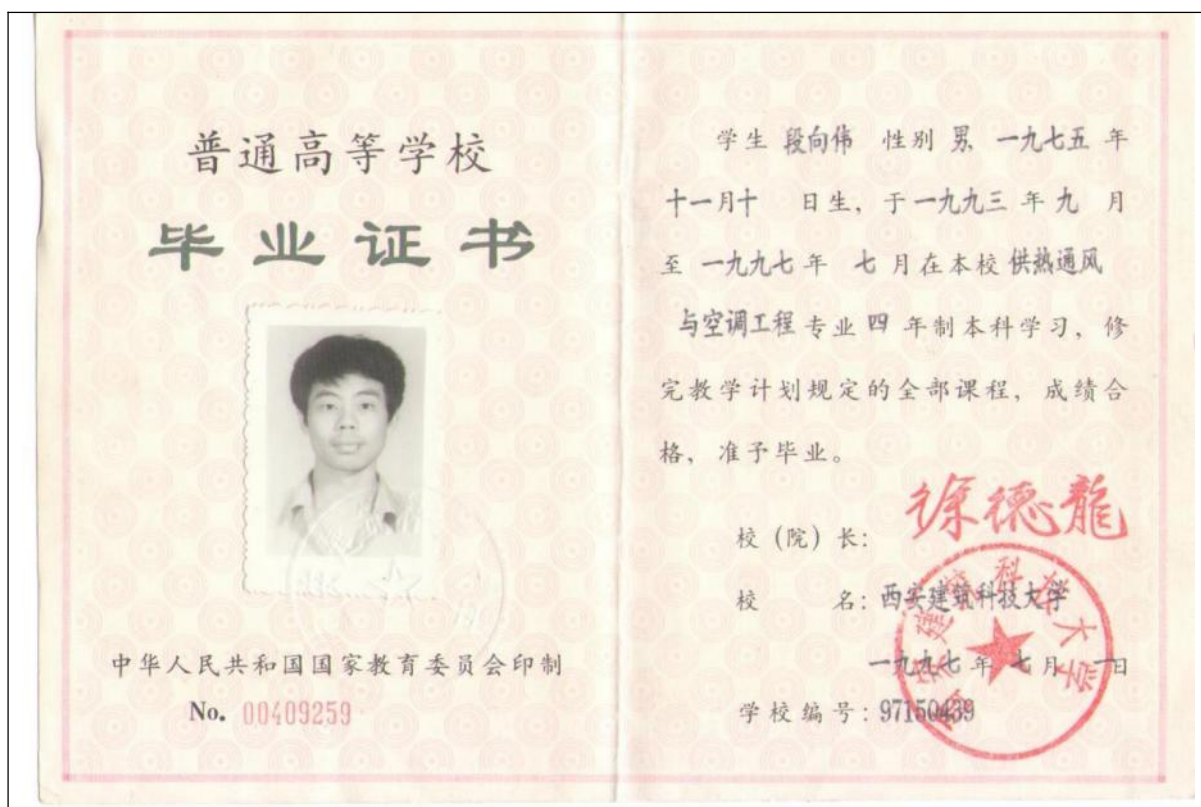 普通高等学校
毕业证书
中华人民共和国国家教育委员会印制
No. 00409259
学生 段向伟 性别 男, 一九七五 年
十一月十 日生, 于一九九三 年 九 月
至 一九九七 年 七 月在本校 供热通风
与空调工程 专业 四 年制本科学习, 修
完教学计划规定的全部课程, 成绩合
格, 准予毕业。
校 (院) 长: 徐德龍
校 名: 西安建筑科技大学
一九九七 年 七 月 一日
学校编号: 97150439
西安建筑科技大学